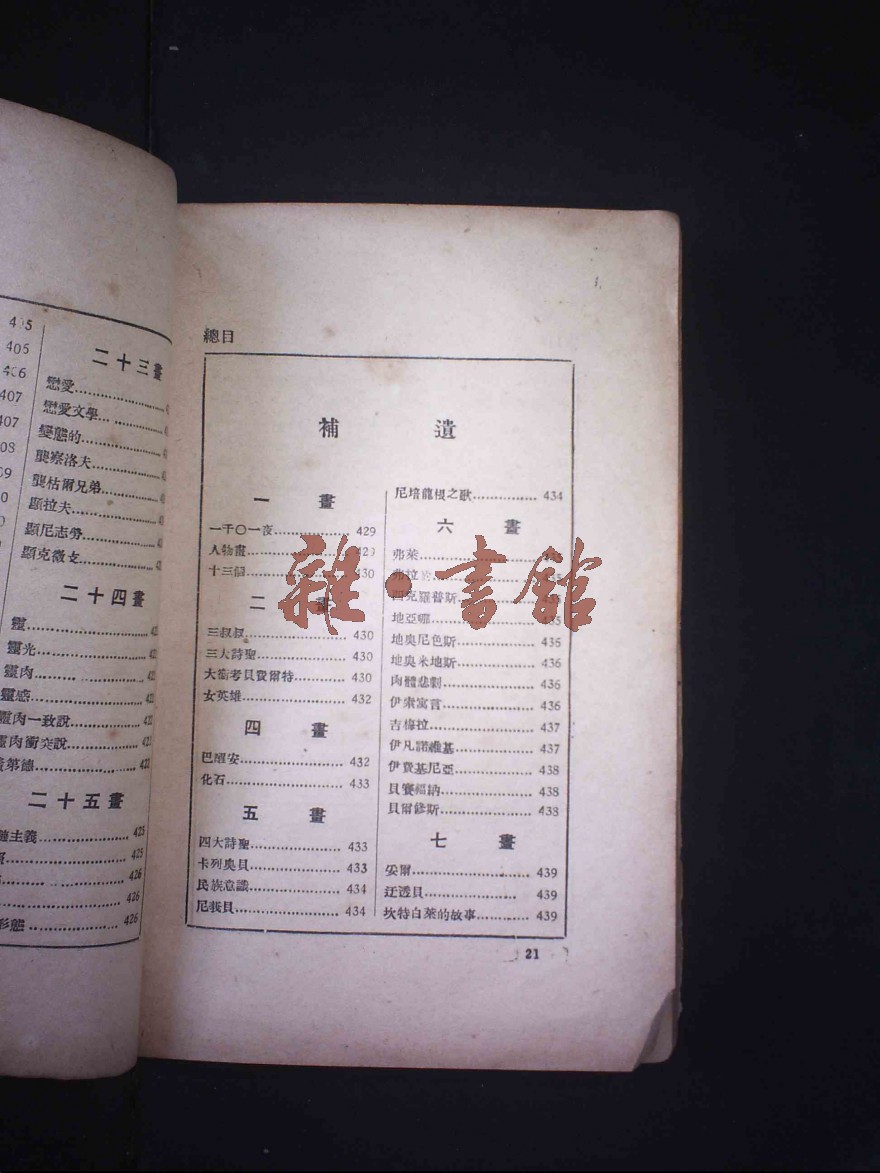 405
406
407
407
二十三畫
戀愛
戀愛文學
變態的
龔察洛夫
龔枯爾兄弟
顯拉夫
顯尼志勞
顯克微支
二十四畫
靈
靈光
靈肉
靈感
靈肉一致說
靈肉衝突說
二十五畫
主義 425
425
426
426
形態
總目
補遺
一畫
一千〇一夜 429
人物畫 429
十三個 430
二畫
三叔叔 430
三大詩聖 430
大衛考貝費爾特 430
女英雄 432
四畫
巴浬安 432
化石 433
五畫
四大詩聖 433
卡列奧貝 433
民族意識 434
尼莪貝 434
尼培龍根之歌 434
六畫
弗萊
弗拉
西克羅普斯
地亞娜
地奧尼色斯 436
地奧米地斯 436
肉體悲劇 436
伊索寓言 436
吉梅拉 437
伊凡諾維基 437
伊費基尼亞 438
貝賽福納 438
貝爾修斯 438
七畫
妥爾 439
迂透貝 439
坎特白萊的故事 439
21
雜·書館